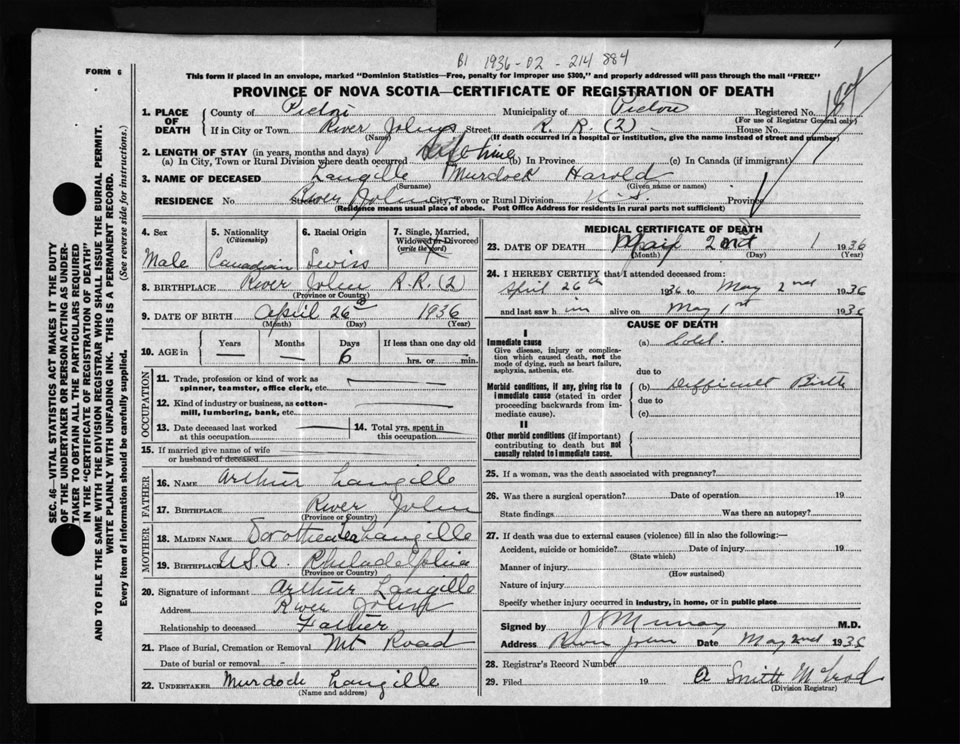 B1 1936-02-214884
FORM 6
This form if placed in an envelope, marked "Dominion Statistics—Free, penalty for improper use $300," and properly addressed will pass through the mail "FREE"
PROVINCE OF NOVA SCOTIA—CERTIFICATE OF REGISTRATION OF DEATH
1. PLACE OF DEATH County of Pictou Municipality of Pictou Registered No.
(For use of Registrar General only)
If in City or Town River John Street R. R. (2) House No.
(Name) (If death occurred in a hospital or institution, give the name instead of street and number)
2. LENGTH OF STAY (in years, months and days)
(a) In City, Town or Rural Division where death occurred Life time (b) In Province (c) In Canada (if immigrant)
3. NAME OF DECEASED Langille Murdock Harold
(Surname) (Given name or names)
RESIDENCE No. Street River John City, Town or Rural Division N.S. Province
(Residence means usual place of abode. Post Office Address for residents in rural parts not sufficient)
SEC. 46—VITAL STATISTICS ACT MAKES IT THE DUTY
OF THE UNDERTAKER OR PERSON ACTING AS UNDER-
TAKER TO OBTAIN ALL THE PARTICULARS REQUIRED
IN THE "CERTIFICATE OF REGISTRATION OF DEATH"
AND TO FILE THE SAME WITH THE DIVISION REGISTRAR WHO SHALL ISSUE THE BURIAL PERMIT.
WRITE PLAINLY WITH UNFADING INK. THIS IS A PERMANENT RECORD.
Every item of information should be carefully supplied. (See reverse side for instructions.)
4. Sex
Male
5. Nationality
(Citizenship)
Canadian
6. Racial Origin
Swiss
7. Single, Married,
Widowed or Divorced
(write the word)
8. BIRTHPLACE River John R.R. (2)
(Province or Country)
9. DATE OF BIRTH April 26 1936
(Month) (Day) (Year)
10. AGE in Years Months Days If less than one day old
— — 6 hrs. or min.
OCCUPATION
11. Trade, profession or kind of work as
spinner, teamster, office clerk, etc.
12. Kind of industry or business, as cotton-
mill, lumbering, bank, etc.
13. Date deceased last worked
at this occupation
14. Total yrs. spent in
this occupation
15. If married give name of wife
or husband of deceased
FATHER
16. NAME Arthur Langille
17. BIRTHPLACE River John
(Province or Country)
MOTHER
18. MAIDEN NAME Dorothea Langille
19. BIRTHPLACE U.S.A. Philadelphia
(Province or Country)
20. Signature of informant Arthur Langille
Address River John
Relationship to deceased Father
21. Place of Burial, Cremation or Removal Mt Road
Date of burial or removal
22. UNDERTAKER Murdock Langille
(Name and address)
MEDICAL CERTIFICATE OF DEATH
23. DATE OF DEATH May 2nd 1936
(Month) (Day)
24. I HEREBY CERTIFY that I attended deceased from:
April 26th 1936 to May 2nd 1936
and last saw him alive on May 1st 1936
CAUSE OF DEATH
I
Immediate cause
Give disease, injury or complica-
tion which caused death, not the
mode of dying, such as heart failure,
asphyxia, asthenia, etc.
(a) Cold
due to
Morbid conditions, if any, giving rise to
immediate cause (stated in order
proceeding backwards from im-
mediate cause).
(b) Difficult Birth
due to
(c)
II
Other morbid conditions (if important)
contributing to death but not
causally related to immediate cause.
25. If a woman, was the death associated with pregnancy?
26. Was there a surgical operation? Date of operation 19
State findings Was there an autopsy?
27. If death was due to external causes (violence) fill in also the following:—
Accident, suicide or homicide? Date of injury 19
(State which)
Manner of injury
(How sustained)
Nature of injury
Specify whether injury occurred in industry, in home, or in public place
Signed by J S Murray M.D.
Address River John Date May 2nd 1936
28. Registrar's Record Number
29. Filed 19 A Smith McLeod
(Division Registrar)